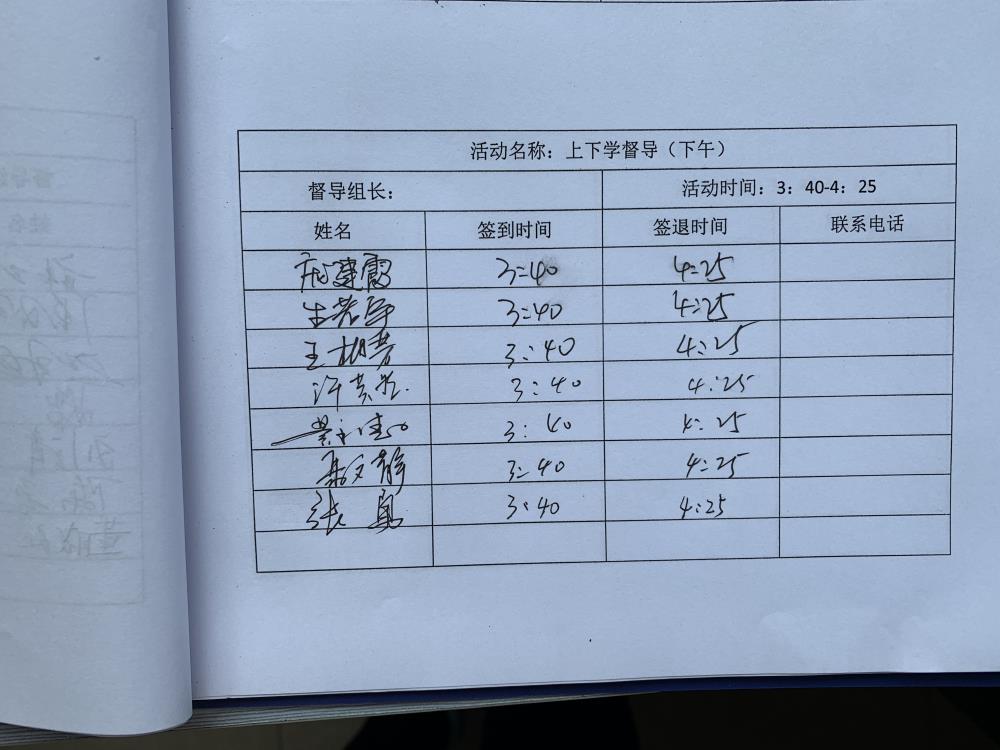 活动名称：上下学督导（下午）
督导组长： 活动时间：3：40-4：25
姓名 签到时间 签退时间 联系电话
3:40 4:25
3:40 4:25
王 3:40 4:25
许 3:40 4:25
3:40 4:25
文静 3:40 4:25
张真 3:40 4:25